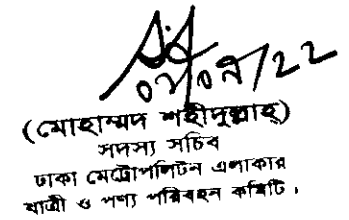 ০৭/০৭/২২
(মোহাম্মদ শহীদুল্লাহ)
সদস্য সচিব
ঢাকা মেট্রোপলিটন এলাকার
যাত্রী ও পণ্য পরিবহন কমিটি।